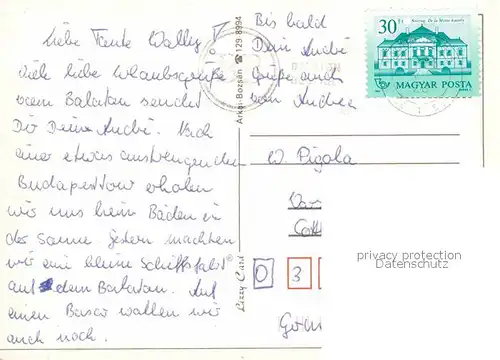 Liebe Tante Wally!
viele liebe Urlaubsgrüße
vom Balaton sendet
Dir Deine André. Nach
einer etwas anstrengenden
Budapesttour erholen
wir uns beim Baden in
der Sonne. Gestern machten
wir eine kleine Schiffsfahrt
auf dem Balaton. Auf
einen Basar wollen wir
auch noch.
Bis bald
Dein André
Grüße auch
von Andrea
Arkan-Bozsán ☎ 129-8994
Lizzy Card
30 Ft
De la Motte kastély
MAGYAR POSTA
W. Pigola
0 3
privacy protection
Datenschutz